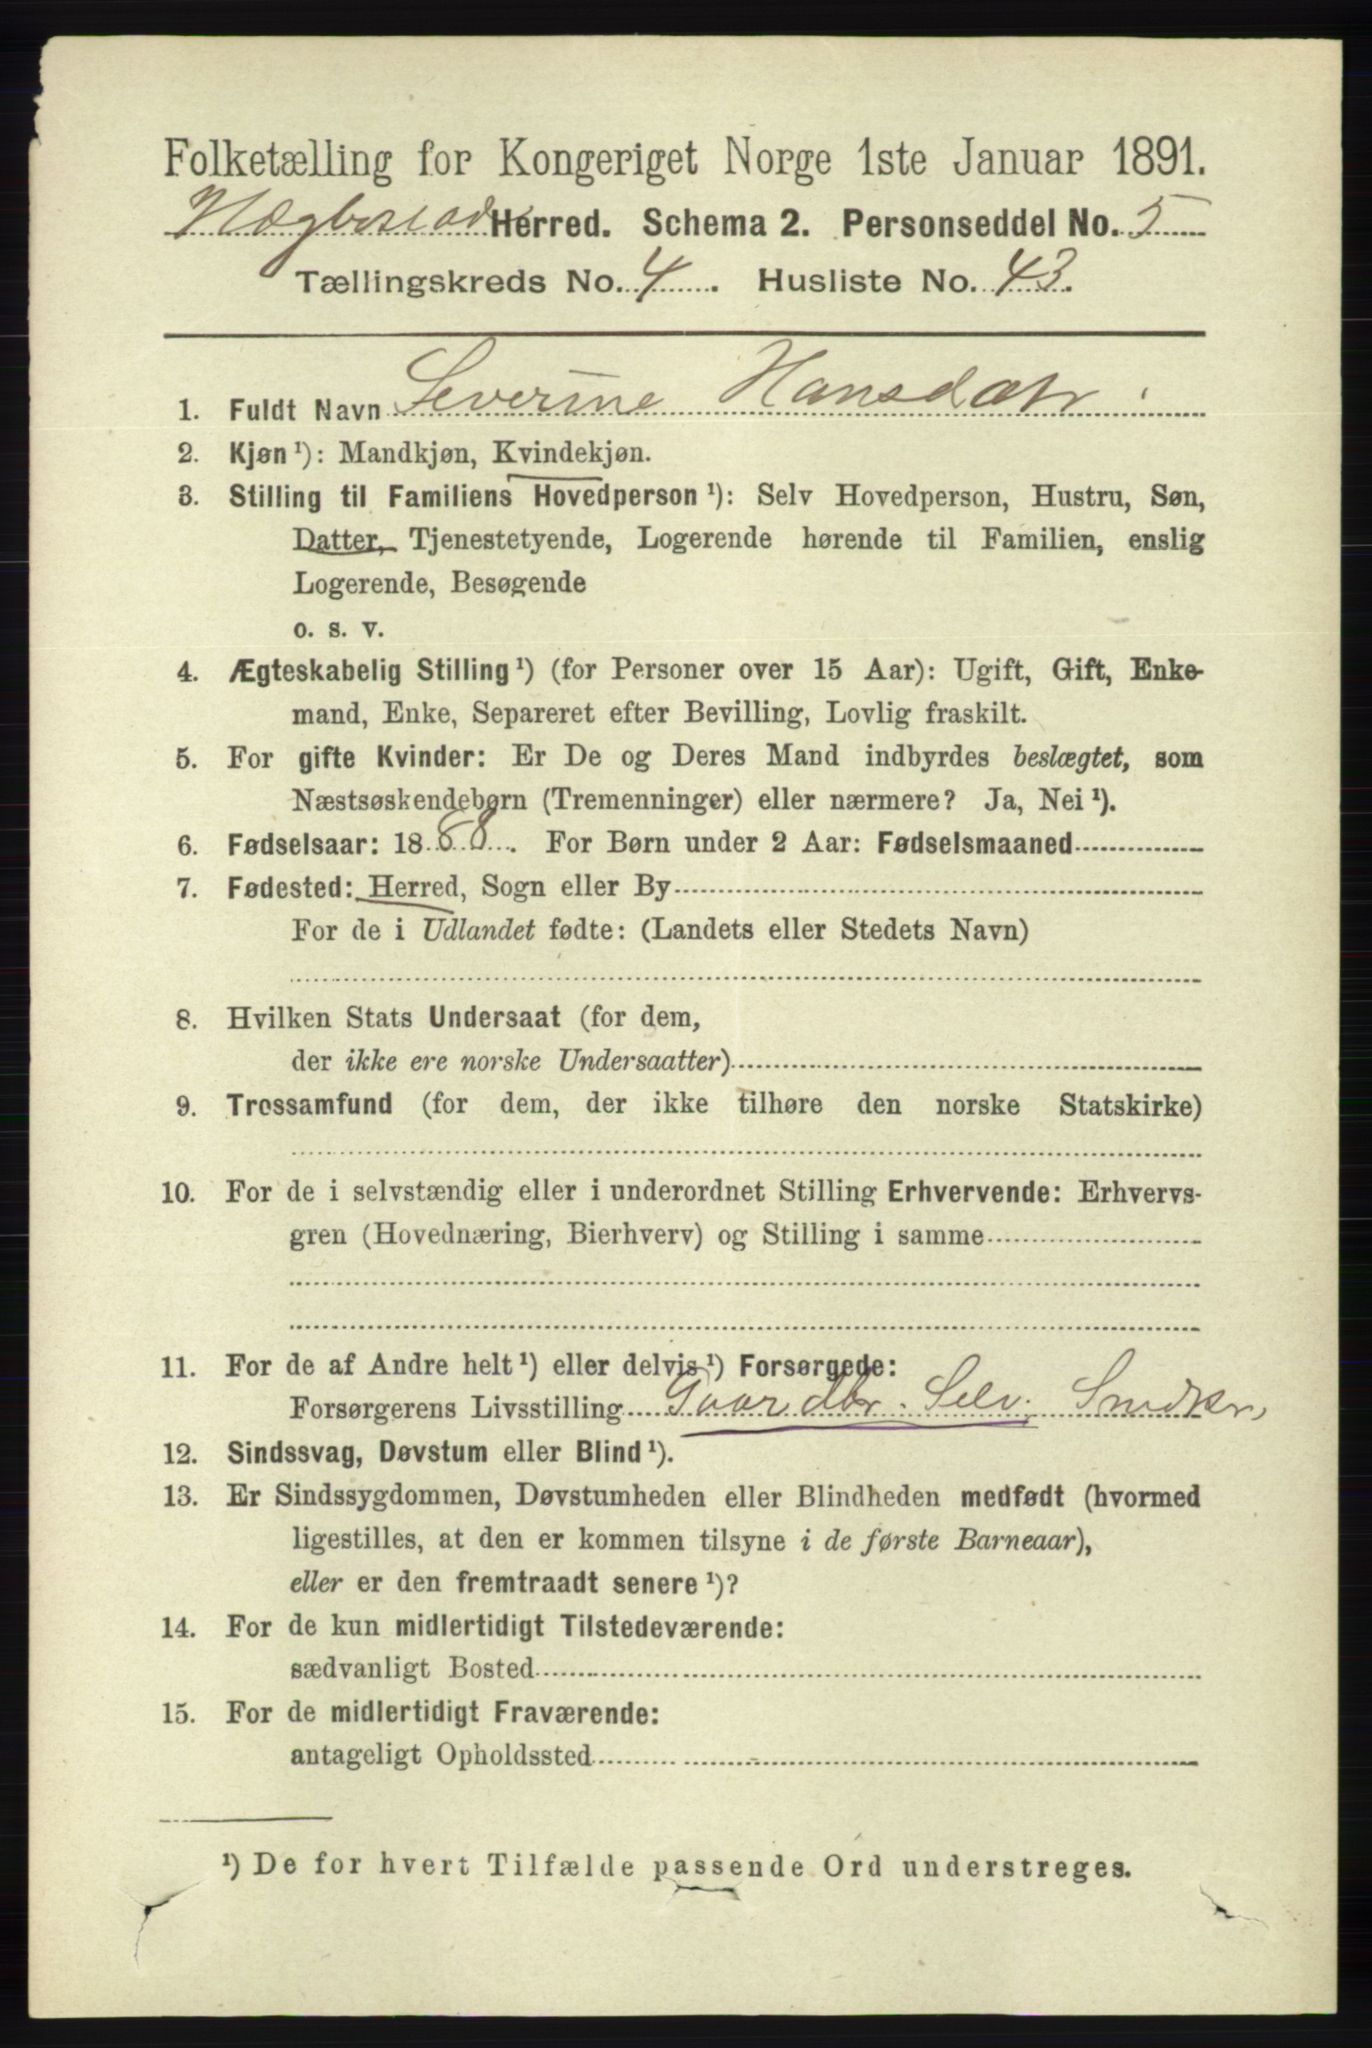 Folketælling for Kongeriget Norge 1ste Januar 1891.
Hægbostad Herred. Schema 2. Personseddel No. 5
Tællingskreds No. 4. Husliste No. 43.
1. Fuldt Navn Severine Hansdatr
2. Kjøn¹): Mandkjøn, Kvindekjøn.
3. Stilling til Familiens Hovedperson¹): Selv Hovedperson, Hustru, Søn,
Datter, Tjenestetyende, Logerende hørende til Familien, enslig
Logerende, Besøgende
o. s. v.
4. Ægteskabelig Stilling¹) (for Personer over 15 Aar): Ugift, Gift, Enke-
mand, Enke, Separeret efter Bevilling, Lovlig fraskilt.
5. For gifte Kvinder: Er De og Deres Mand indbyrdes beslægtet, som
Næstsøskendebørn (Tremenninger) eller nærmere? Ja, Nei¹).
6. Fødselsaar: 1888. For Børn under 2 Aar: Fødselsmaaned
7. Fødested: Herred, Sogn eller By
For de i Udlandet fødte: (Landets eller Stedets Navn)
8. Hvilken Stats Undersaat (for dem,
der ikke ere norske Undersaatter)
9. Trossamfund (for dem, der ikke tilhøre den norske Statskirke)
10. For de i selvstændig eller i underordnet Stilling Erhvervende: Erhvervs-
gren (Hovednæring, Bierhverv) og Stilling i samme
11. For de af Andre helt¹) eller delvis¹) Forsørgede:
Forsørgerens Livsstilling Gaardbr. Selv.
12. Sindssvag, Døvstum eller Blind¹).
13. Er Sindssygdommen, Døvstumheden eller Blindheden medfødt (hvormed
ligestilles, at den er kommen tilsyne i de første Barneaar),
eller er den fremtraadt senere¹)?
14. For de kun midlertidigt Tilstedeværende:
sædvanligt Bosted
15. For de midlertidigt Fraværende:
antageligt Opholdssted
¹) De for hvert Tilfælde passende Ord understreges.